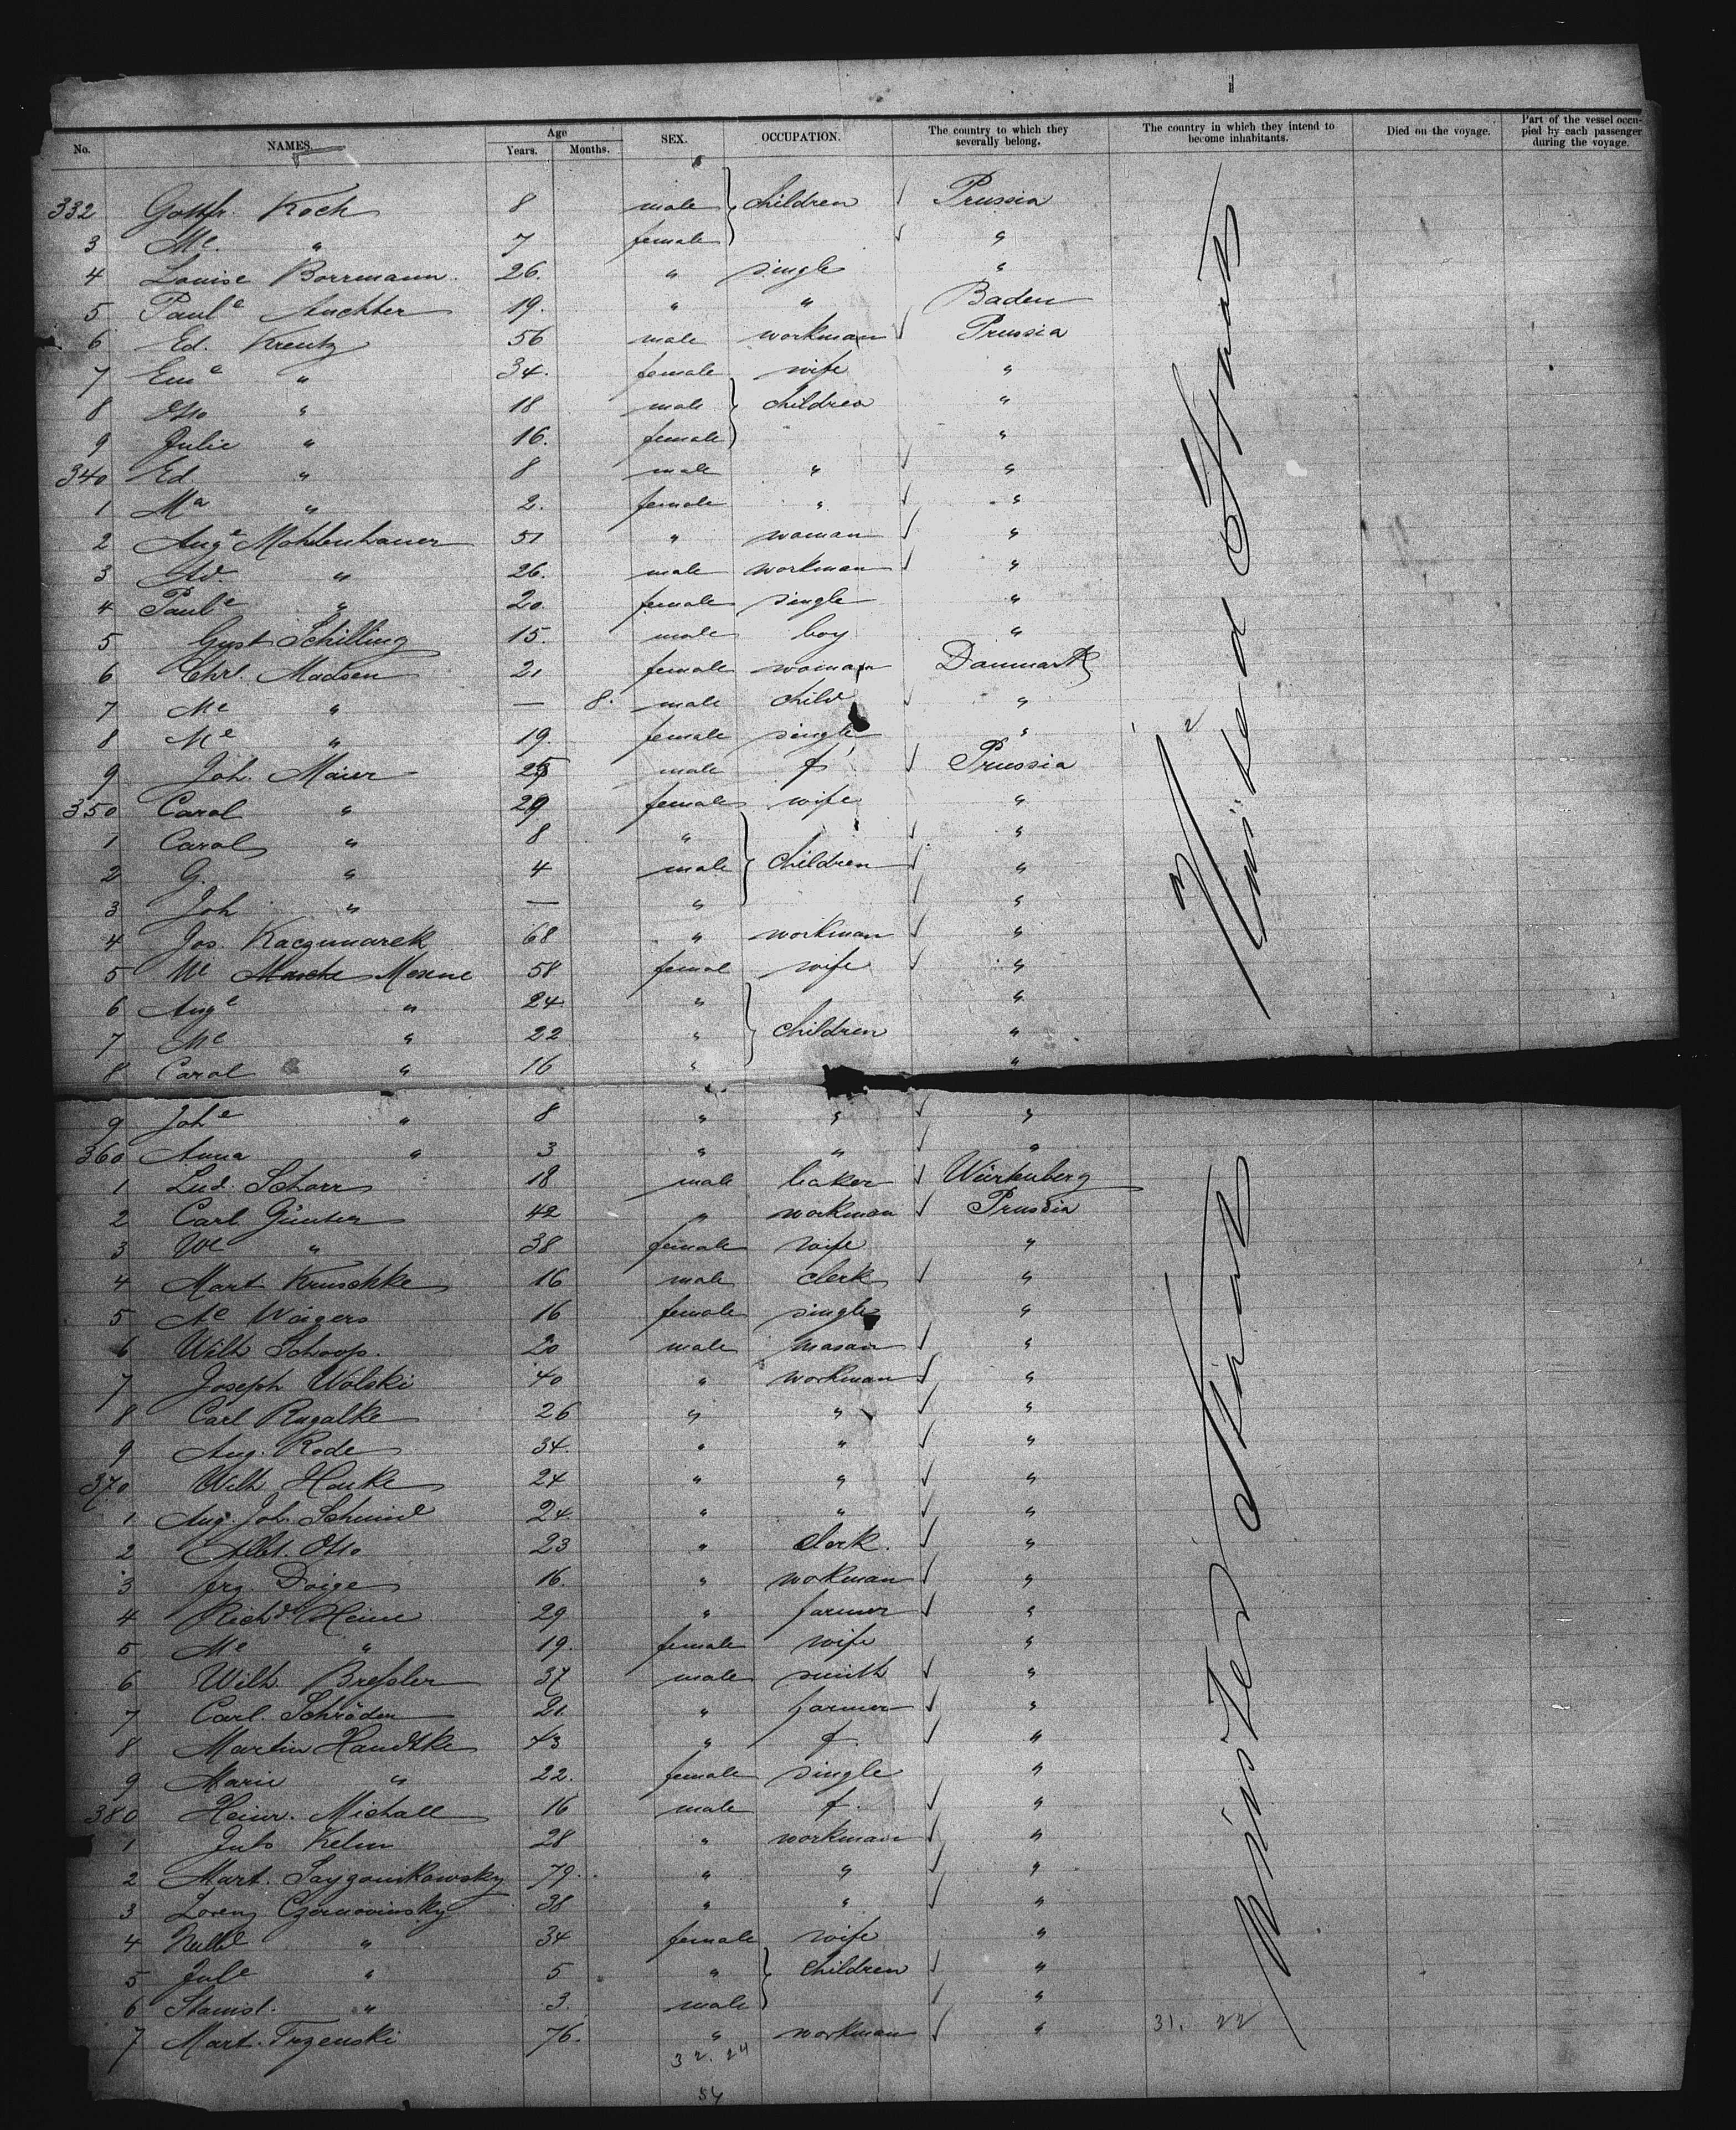 No. NAMES. Age Years. Months. SEX. OCCUPATION. The country to which they severally belong. The country in which they intend to become inhabitants. Died on the voyage. Part of the vessel occupied by each passenger during the voyage.
332 Gottfr. Koch 8 male } children ✓ Prussia
3 Me. " 7 female ✓ "
4 Louise Borrmann. 26. " single "
5 Paule Auchter 19. " " Baden
6 Ed. Kreutz 56 male workman ✓ Prussia
7 Eme " 34. female wife "
8 Otto " 18 male } children "
9 Julie " 16. female "
340 Ed " 8 male " ✓ "
1 Ma " 2. female " ✓ "
2 Auge Mohlenhauer 51 " woman ✓ "
3 Ad. " 26. male workman ✓ "
4 Paule " 20. female single "
5 Gust Schilling 15. male boy "
6 Chr. Madsen 21 female woman Danmark
7 Me " — 8. male child ✓ "
8 Me " 19. female single "
9 Joh. Maier male f ✓ Prussia
350 Carol " 29 female wife "
1 Carol " 8 " } ✓ "
2 G. " 4 male children ✓ "
3 Joh " — " ✓ "
4 Jos. Kaczmarek 68 " workman ✓ "
5 We Mexne 58 femal wife ✓ "
6 Auge " 24. " } "
7 Me " 22 " children "
8 Carol " 16 " "
9 Johe " 8 " " ✓ "
360 Anna " 3 " " ✓ "
1 Lud. Schorr 18 male baker ✓ Würtenberg
2 Carl Günter 42 " workman ✓ Prussia
3 We " 38 female wife "
4 Mart Kruschke 16 male clerk ✓ "
5 Ae Wägers 16 female single "
6 Wilh Schoop. 20 male mason ✓ "
7 Joseph Wolski 40 " workman ✓ "
8 Carl Rugalke 26 " " ✓ "
9 Aug. Rode 34. " " ✓ "
370 Wilh Harke 24 " " ✓ "
1 Aug. Joh. Schmid 24. " " ✓ "
2 Albt. Otto 23 " clerk. ✓ "
3 Frz. Doige 16. " workman ✓ "
4 Richd Heine 29 " farmer ✓ "
5 Me " 19. female wife "
6 Wilh. Breßler 37 male smith ✓ "
7 Carl. Schröder 21 " farmer ✓ "
8 Martin Handtke 43 " f. ✓ "
9 Marie " 22. female single "
380 Heinr. Michall 16 male f. ✓ "
1 Juls Kelm 28 " workman ✓ "
2 Mart. 79. " " ✓ "
3 Lorenz Czernovinsky 38 " " ✓ "
4 " 34 female wife "
5 Jule " 5 " } children ✓ "
6 Stanisl. " 3. male ✓ "
7 Mart. Trzenski 76. " workman ✓ " 31. 22
32. 24
54
United States
United States